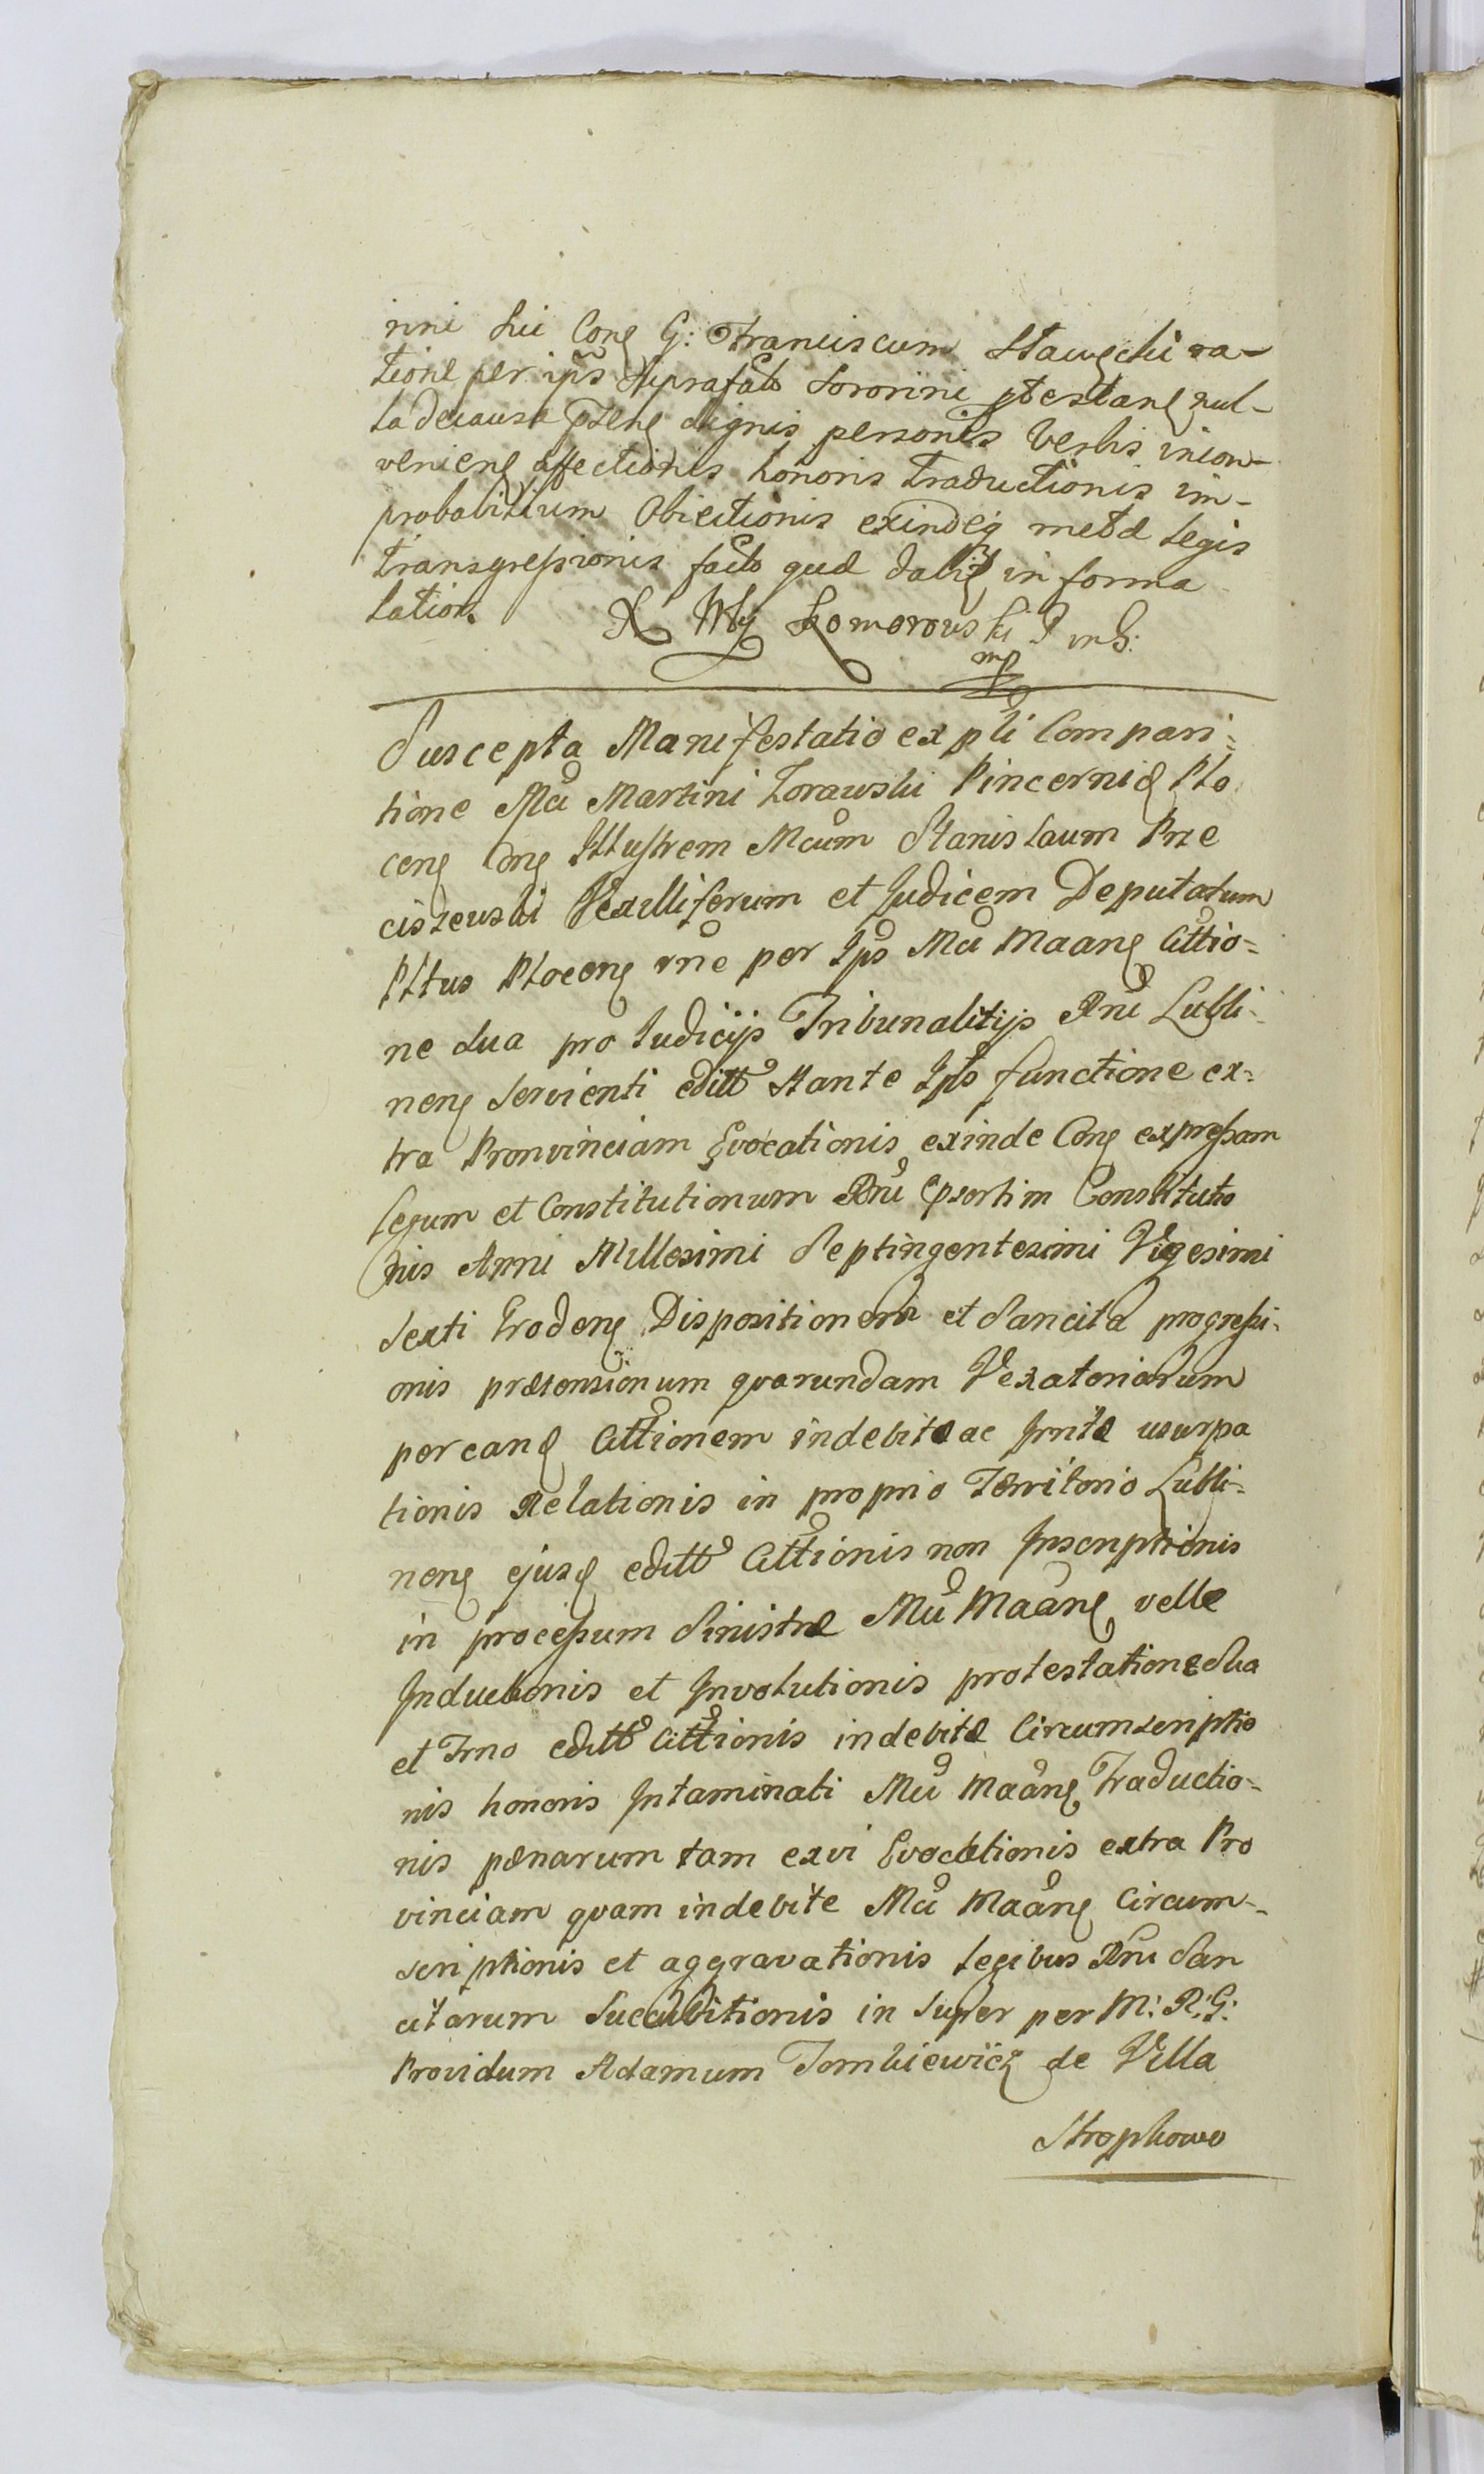 rini sui Cong G: Franciscum Stawęcki ra-
tione per ips suprafato Sororini ptestang nul-
la de causa psteng dignis personis Verbis incon-
veniens affectionis honoris traductionis im-
probabilium Obiectionis exindeq metæ Legis
transgressionis facto quæ datis in forma
lation. X Komorowski
mp
Suscepta Manifestatio ex pli Compari-
tione Mci Martini Zorawski Pincernæ Plo
ceng Cong Illustrem Mcum Stanislaum Prze
ciszewski Vexilliferum et Judicem Deputatum
Pltus Ploceng rne per Ips Mci Maang Cittio-
ne sua pro Judicijs Tribunalitijs Rni Lubli-
neng servienti editt stante Ips functione ex-
tra Pronvinciam Evocationis exinde Cong expressam
Legum et Constitutionum Rni psertim Constitutio
nis Anni Millesimi Septingentesimi Vigesimi
Sexti Grodeng Dispositionem et Sancita progressi-
onis prætensionum quarundam Vexatoriarum
per eand Cittionem indebitæ ac Injritæ usurpa
tionis Relationis in proprio Territorio Lubli-
neng ejusd editt Cittionis non Inscriptionis
in processum Sinistræ Mci Maang velle
Inductionis et Involutionis protestatione Sua
et Trno editt Cittionis indebitæ Circumscriptio
nis honoris Intaminati Mci Maang Traductio-
nis pænarum tam ex vi Evocationis extra Pro
vinciam quam indebite Mci Maang Circum-
scriptionis et aggravationis Legibus Rni San
citarum Succubitionis in Super per M: R: G:
Providum Adamum Tomkiewicz de Villa
Stropkowo